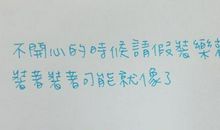 不開心的時候請假裝樂
裝著裝著可能就像了